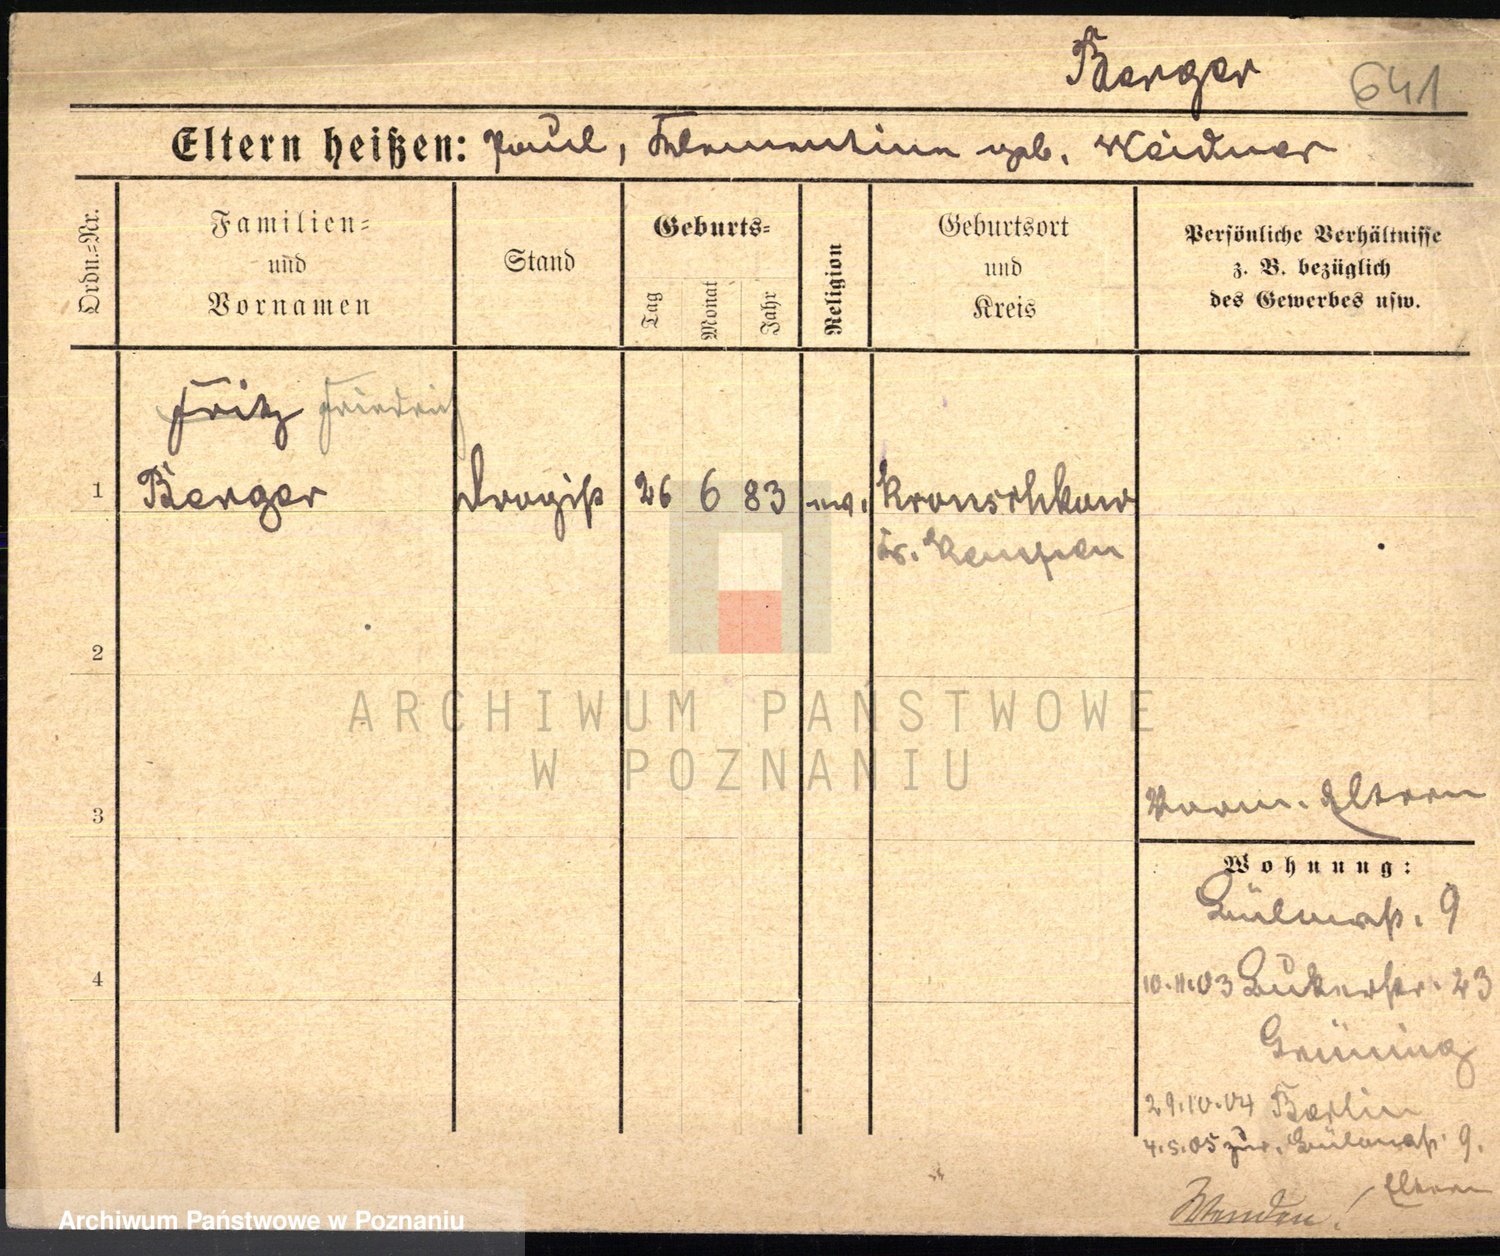 Berger
641
Eltern heißen: Paul, Klementine geb. Weidner
Ordn.=Nr.
Familien=
und
Vornamen
Stand
Geburts=
Tag
Monat
Jahr
Religion
Geburtsort
und
Kreis
Persönliche Verhältnisse
z. B. bezüglich
des Gewerbes usw.
Fritz Friedrich
1 Berger Drogist 26 6 83 ev. Kronschkow
Kr. Kempen
2
ARCHIWUM PAŃSTWOWE
W POZNANIU
3
Eltern
Wohnung:
9
4
10.11.03 23
29.10.04 Berlin
4.5.05 zur. 9.
Eltern
Wenden!
Archiwum Państwowe w Poznaniu